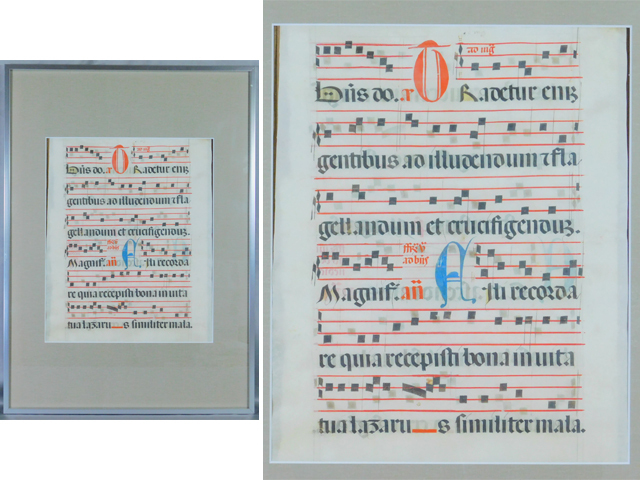 Dñs do. r T ad mg̃ Radetur eniꝫ
gentibus ad illudendum ⁊ fla
gellandum et crucifigenduꝫ.
Magnif. añ F ili recorda
re quia recepisti bona in uita
tua lazaru_s similiter mala.
Dñs do. r T ad mg̃ Radetur eniꝫ
gentibus ad illudendum ⁊ fla
gellandum et crucifigenduꝫ.
Magnif. añ F ili recorda
re quia recepisti bona in uita
tua lazaru_s similiter mala.